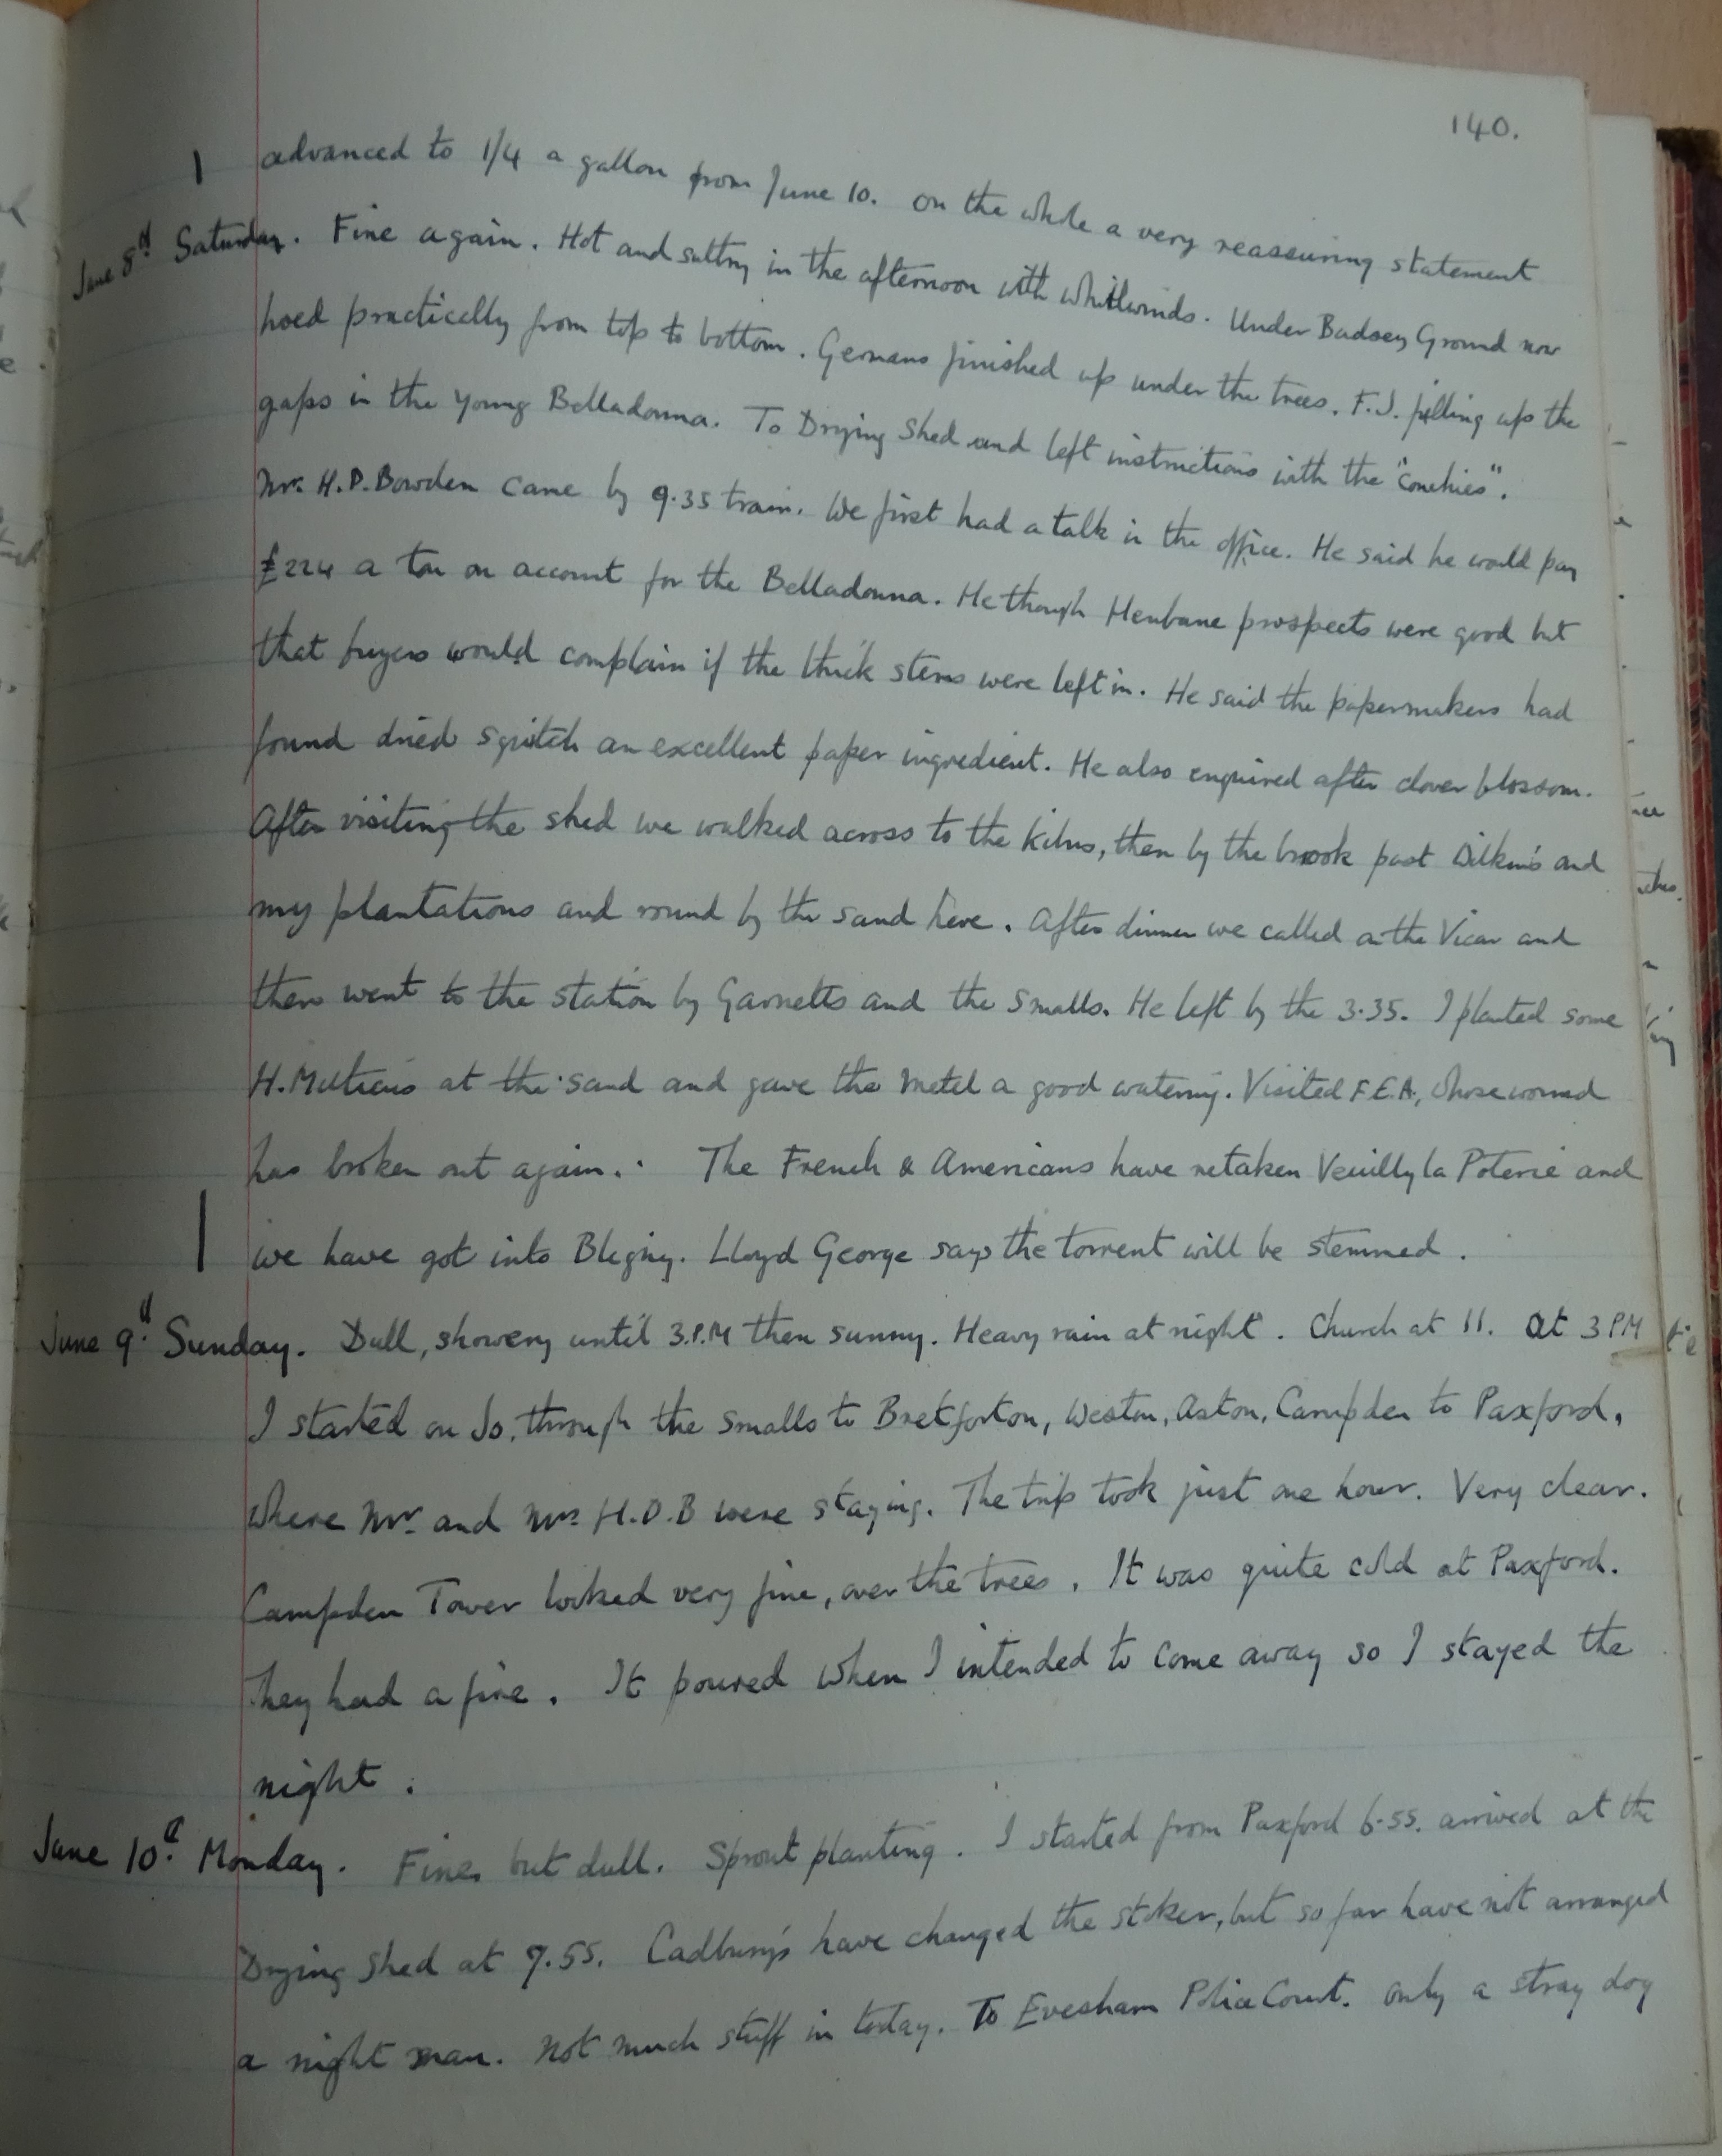 140.
advanced to 1/4 a gallon from June 10. On the whole a very reassuring statement
June 8th Saturday. Fine again. Hot and sultry in the afternoon with whirlwinds. Under Badsey Ground now
hoed practically from top to bottom. Germans finished up under the trees. F.J. filling up the
gaps in the young Belladonna. To Drying Shed and left instructions with the "conchies".
Mr. H.D. Bowden came by 9.35 train. We first had a talk in the office. He said he would pay
£224 a ton on account for the Belladonna. He though Henbane prospects were good but
that buyers would complain if the thick stems were left in. He said the papermakers had
found dried squitch an excellent paper ingredient. He also enquired after clover blossom.
After visiting the shed we walked across to the kilns, then by the brook past Wilkins and
my plantations and round by the sand here. After dinner we called on the Vicar and
then went to the station by Garnetts and the Smalls. He left by the 3.35. I planted some
H. Muticus at the sand and gave the Metel a good watering. Visited F.E.A., whose wound
has broken out again. The French & Americans have retaken Veuilly la Poterie and
we have got into Bligny. Lloyd George says the torrent will be stemmed.
June 9th Sunday. Dull, showery until 3.P.M then sunny. Heavy rain at night. Church at 11. At 3 PM
I started on Jo. through the Smalls to Bretforton, Weston, Aston, Campden to Paxford,
where Mr. and Mrs H.D.B were staying. The trip took just one hour. Very clear.
Campden Tower looked very fine, over the trees. It was quite cold at Paxford.
They had a fire. It poured when I intended to come away so I stayed the
night.
June 10th Monday. Fine, but dull. Sprout planting. I started from Paxford 6.55. arrived at the
Drying Shed at 7.55. Cadbury's have changed the stoker, but so far have not arranged
a night man. Not much stuff in today. To Evesham Police Court. Only a stray dog